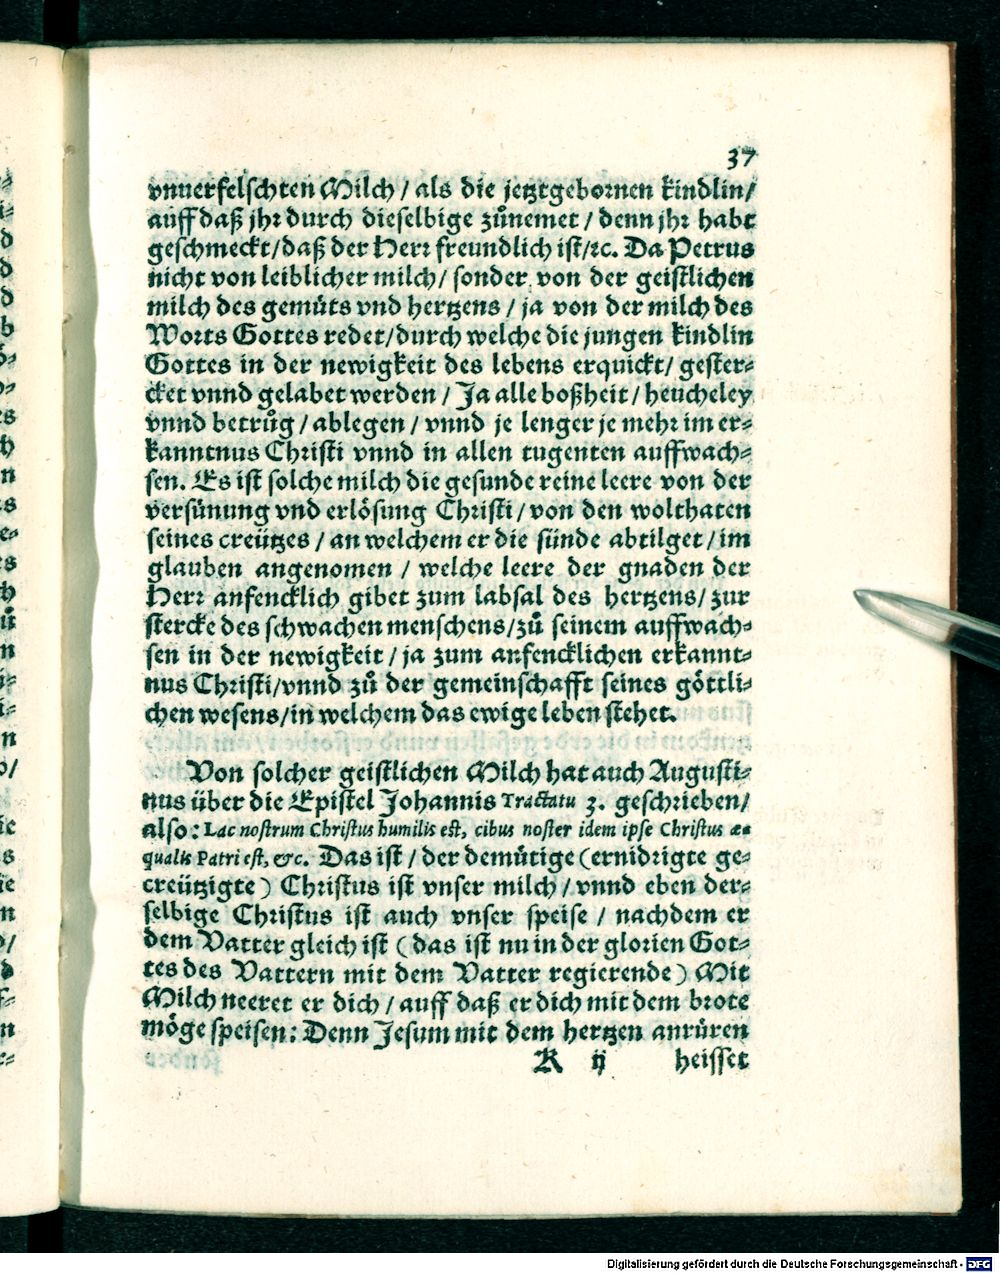 37
vnuerfelschten Milch / als die jetztgebornen kindlin/
auff daß jhr durch dieselbige zůnemet / denn jhr habt
geschmeckt/daß der Herr freundlich ist/ꝛc. Da Petrus
nicht von leiblicher milch/ sonder von der geistlichen
milch des gemüts vnd hertzens / ja von der milch des
Worts Gottes redet/durch welche die jungen kindlin
Gottes in der newigkeit des lebens erquickt/ gester⸗
cket vnnd gelabet werden / Ja alle boßheit / heucheley
vnnd betrůg / ablegen / vnnd je lenger je mehr im er⸗
kanntnus Christi vnnd in allen tugenten auffwach⸗
sen. Es ist solche milch die gesunde reine leere von der
versünung vnd erlösung Christi / von den wolthaten
seines creützes / an welchem er die sünde abtilget / im
glauben angenomen / welche leere der gnaden der
Herr anfencklich gibet zum labsal des hertzens/ zur
stercke des schwachen menschens/zů seinem auffwach⸗
sen in der newigkeit / ja zum anfencklichen erkannt⸗
nus Christi/vnnd zů der gemeinschafft seines göttli⸗
chen wesens/in welchem das ewige leben stehet.
Von solcher geistlichen Milch hat auch Augusti⸗
nus über die Epistel Johannis Tractatu 3. geschrieben/
also: Lac nostrum Christus humilis est, cibus noster idem ipse Christus æ⸗
qualis Patri est, &c. Das ist / der demütige (ernidrigte ge⸗
creützigte) Christus ist vnser milch / vnnd eben der⸗
selbige Christus ist auch vnser speise / nachdem er
dem Vatter gleich ist (das ist nu in der glorien Got⸗
tes des Vattern mit dem Vatter regierende) Mit
Milch neeret er dich / auff daß er dich mit dem brote
möge speisen: Denn Jesum mit dem hertzen anrüren
K ij heisset
Digitalisierung gefördert durch die Deutsche Forschungsgemeinschaft - DFG